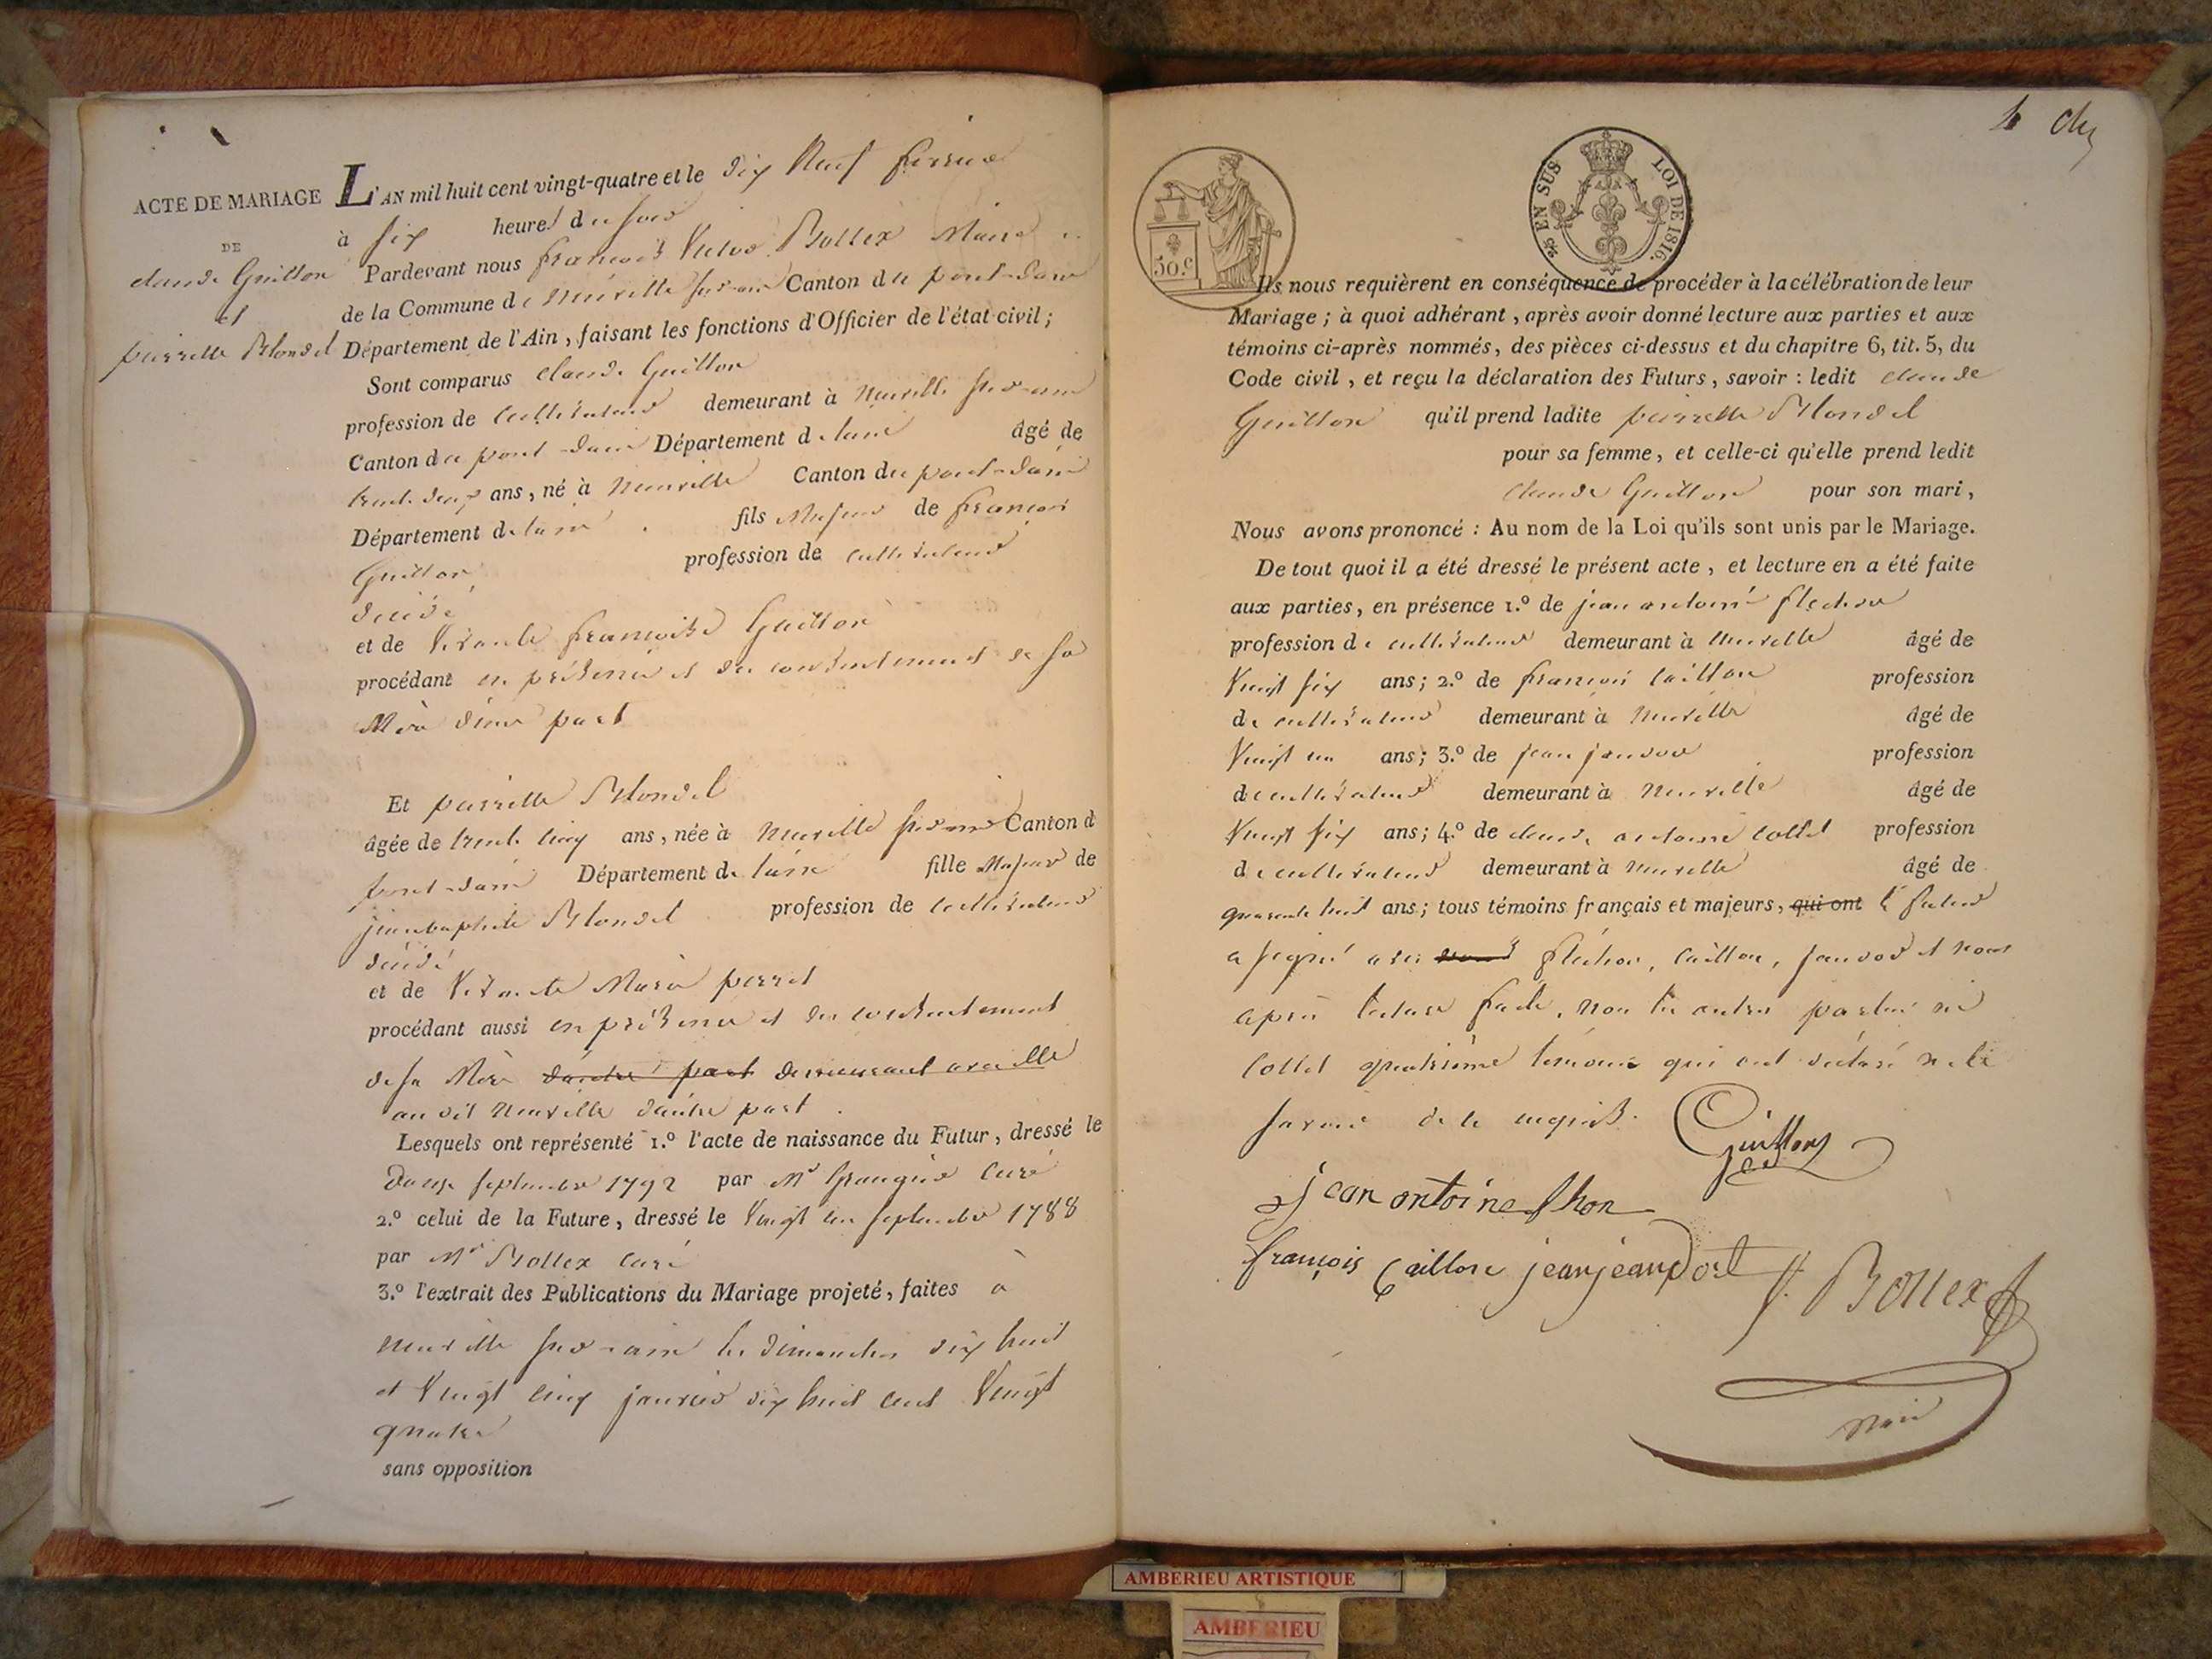 ACTE DE MARIAGE
DE
claude Guillon
et
pierrette Blondel
L'AN mil huit cent vingt-quatre et le dix Neuf fevrier
à six heures du soir
Pardevant nous françois Victor Bollex Maire
de la Commune de Neuville sur-ain Canton du pont-dain
Département de l'Ain, faisant les fonctions d'Officier de l'état civil;
Sont comparus claude Guillon
profession de cultivateur demeurant à Neuville sur-ain
Canton du pont-dain Département de lain âgé de
trente deux ans, né à Neuville Canton du pont-dain
Département de lain fils Majeur de françois
Guillon profession de cultivateur
décédé
et de Vivante françoise Guillon
procédant en présence et du consentement de sa
Mère d'une part
Et pierrette Blondel
âgée de trente cinq ans, née à Neuville sur-ain Canton d
pont-dain Département de lain fille Majeure de
jean baptiste Blondel profession de cultivateur
décédé
et de Vivante Marie perret
procédant aussi en présence et du consentement
de sa Mère d'autre part demeurant avec elle
au dit Neuville d'autre part.
Lesquels ont représenté 1.º l'acte de naissance du Futur, dressé le
Douze septembre 1792 par Mr Grangier curé
2.º celui de la Future, dressé le Vingt un septembre 1788
par Mr Bollex curé
3.º l'extrait des Publications du Mariage projeté, faites à
Neuville sur-ain les dimanches dix huit
et Vingt cinq janvier dix huit cent Vingt
quatre
sans opposition
50.c
25 EN SUS LOI DE 1816.
Ils nous requièrent en conséquence de procéder à la célébration de leur
Mariage; à quoi adhérant, après avoir donné lecture aux parties et aux
témoins ci-après nommés, des pièces ci-dessus et du chapitre 6, tit. 5, du
Code civil, et reçu la déclaration des Futurs, savoir: ledit claude
Guillon qu'il prend ladite pierrette Blondel
pour sa femme, et celle-ci qu'elle prend ledit
claude Guillon pour son mari,
Nous avons prononcé: Au nom de la Loi qu'ils sont unis par le Mariage.
De tout quoi il a été dressé le présent acte, et lecture en a été faite
aux parties, en présence 1.º de jean antoine flechon
profession de cultivateur demeurant à Neuville âgé de
Vingt six ans; 2.º de françois Caillon profession
de cultivateur demeurant à Neuville âgé de
Vingt un ans; 3.º de jean profession
de cultivateur demeurant à Neuville âgé de
Vingt six ans; 4.º de claude antoine collet profession
de cultivateur demeurant à Neuville âgé de
quarante huit ans; tous témoins français et majeurs, qui ont le futur
a signé avec nous fléchon, Caillon, et nous
après lecture faite, non les autres parties ni
Collet quatrième temoin qui ont déclaré ne le
savoir de ce enquis.
Guillon
jean antoine
françois Caillon jean jeandot f. Bollex
Maire
AMBERIEU ARTISTIQUE
AMBERIEU